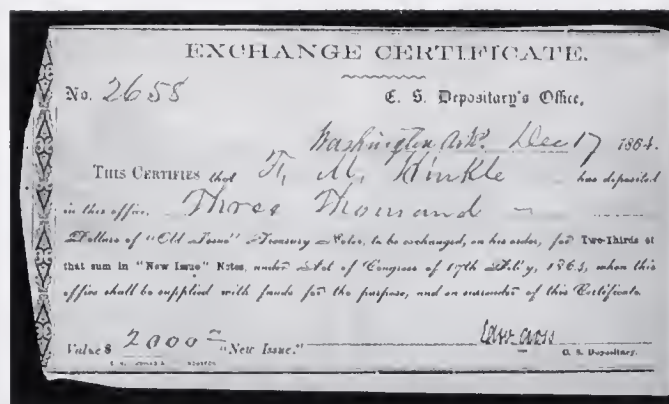 EXCHANGE CERTIFICATE.
No. 2658
C. S. Depositary's Office,
Washington Arks. Dec 17 1864.
THIS CERTIFIES that F. M. Hinkle has deposited
in this office, Three Thousand
Dollars of "Old Issue" Treasury Notes, to be exchanged, on his order, for Two-Thirds of
that sum in "New Issue" Notes, under Act of Congress of 17th Feb'y, 1864, when this
office shall be supplied with funds for the purpose, and on surrender of this Certificate.
Value $ 2000 "New Issue."
C. S. Depositary.